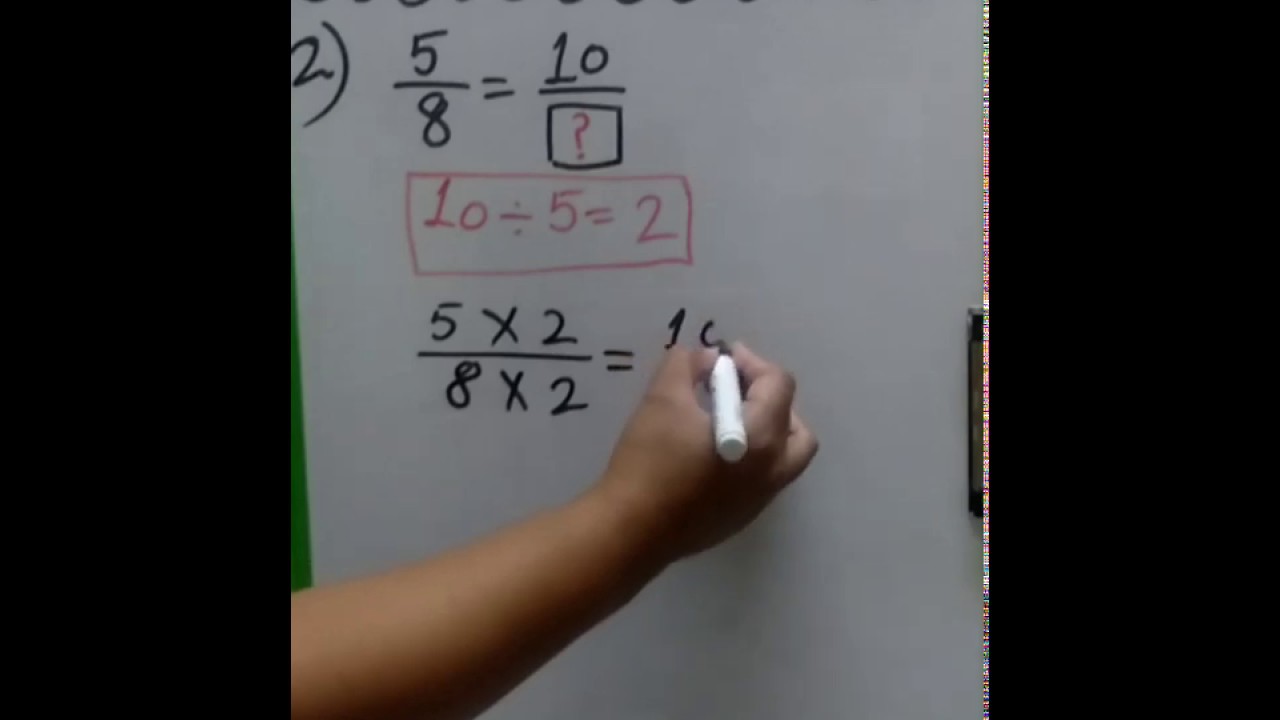 2) 5/8 = 10/?
10 ÷ 5 = 2
5 X 2 / 8 X 2 = 10